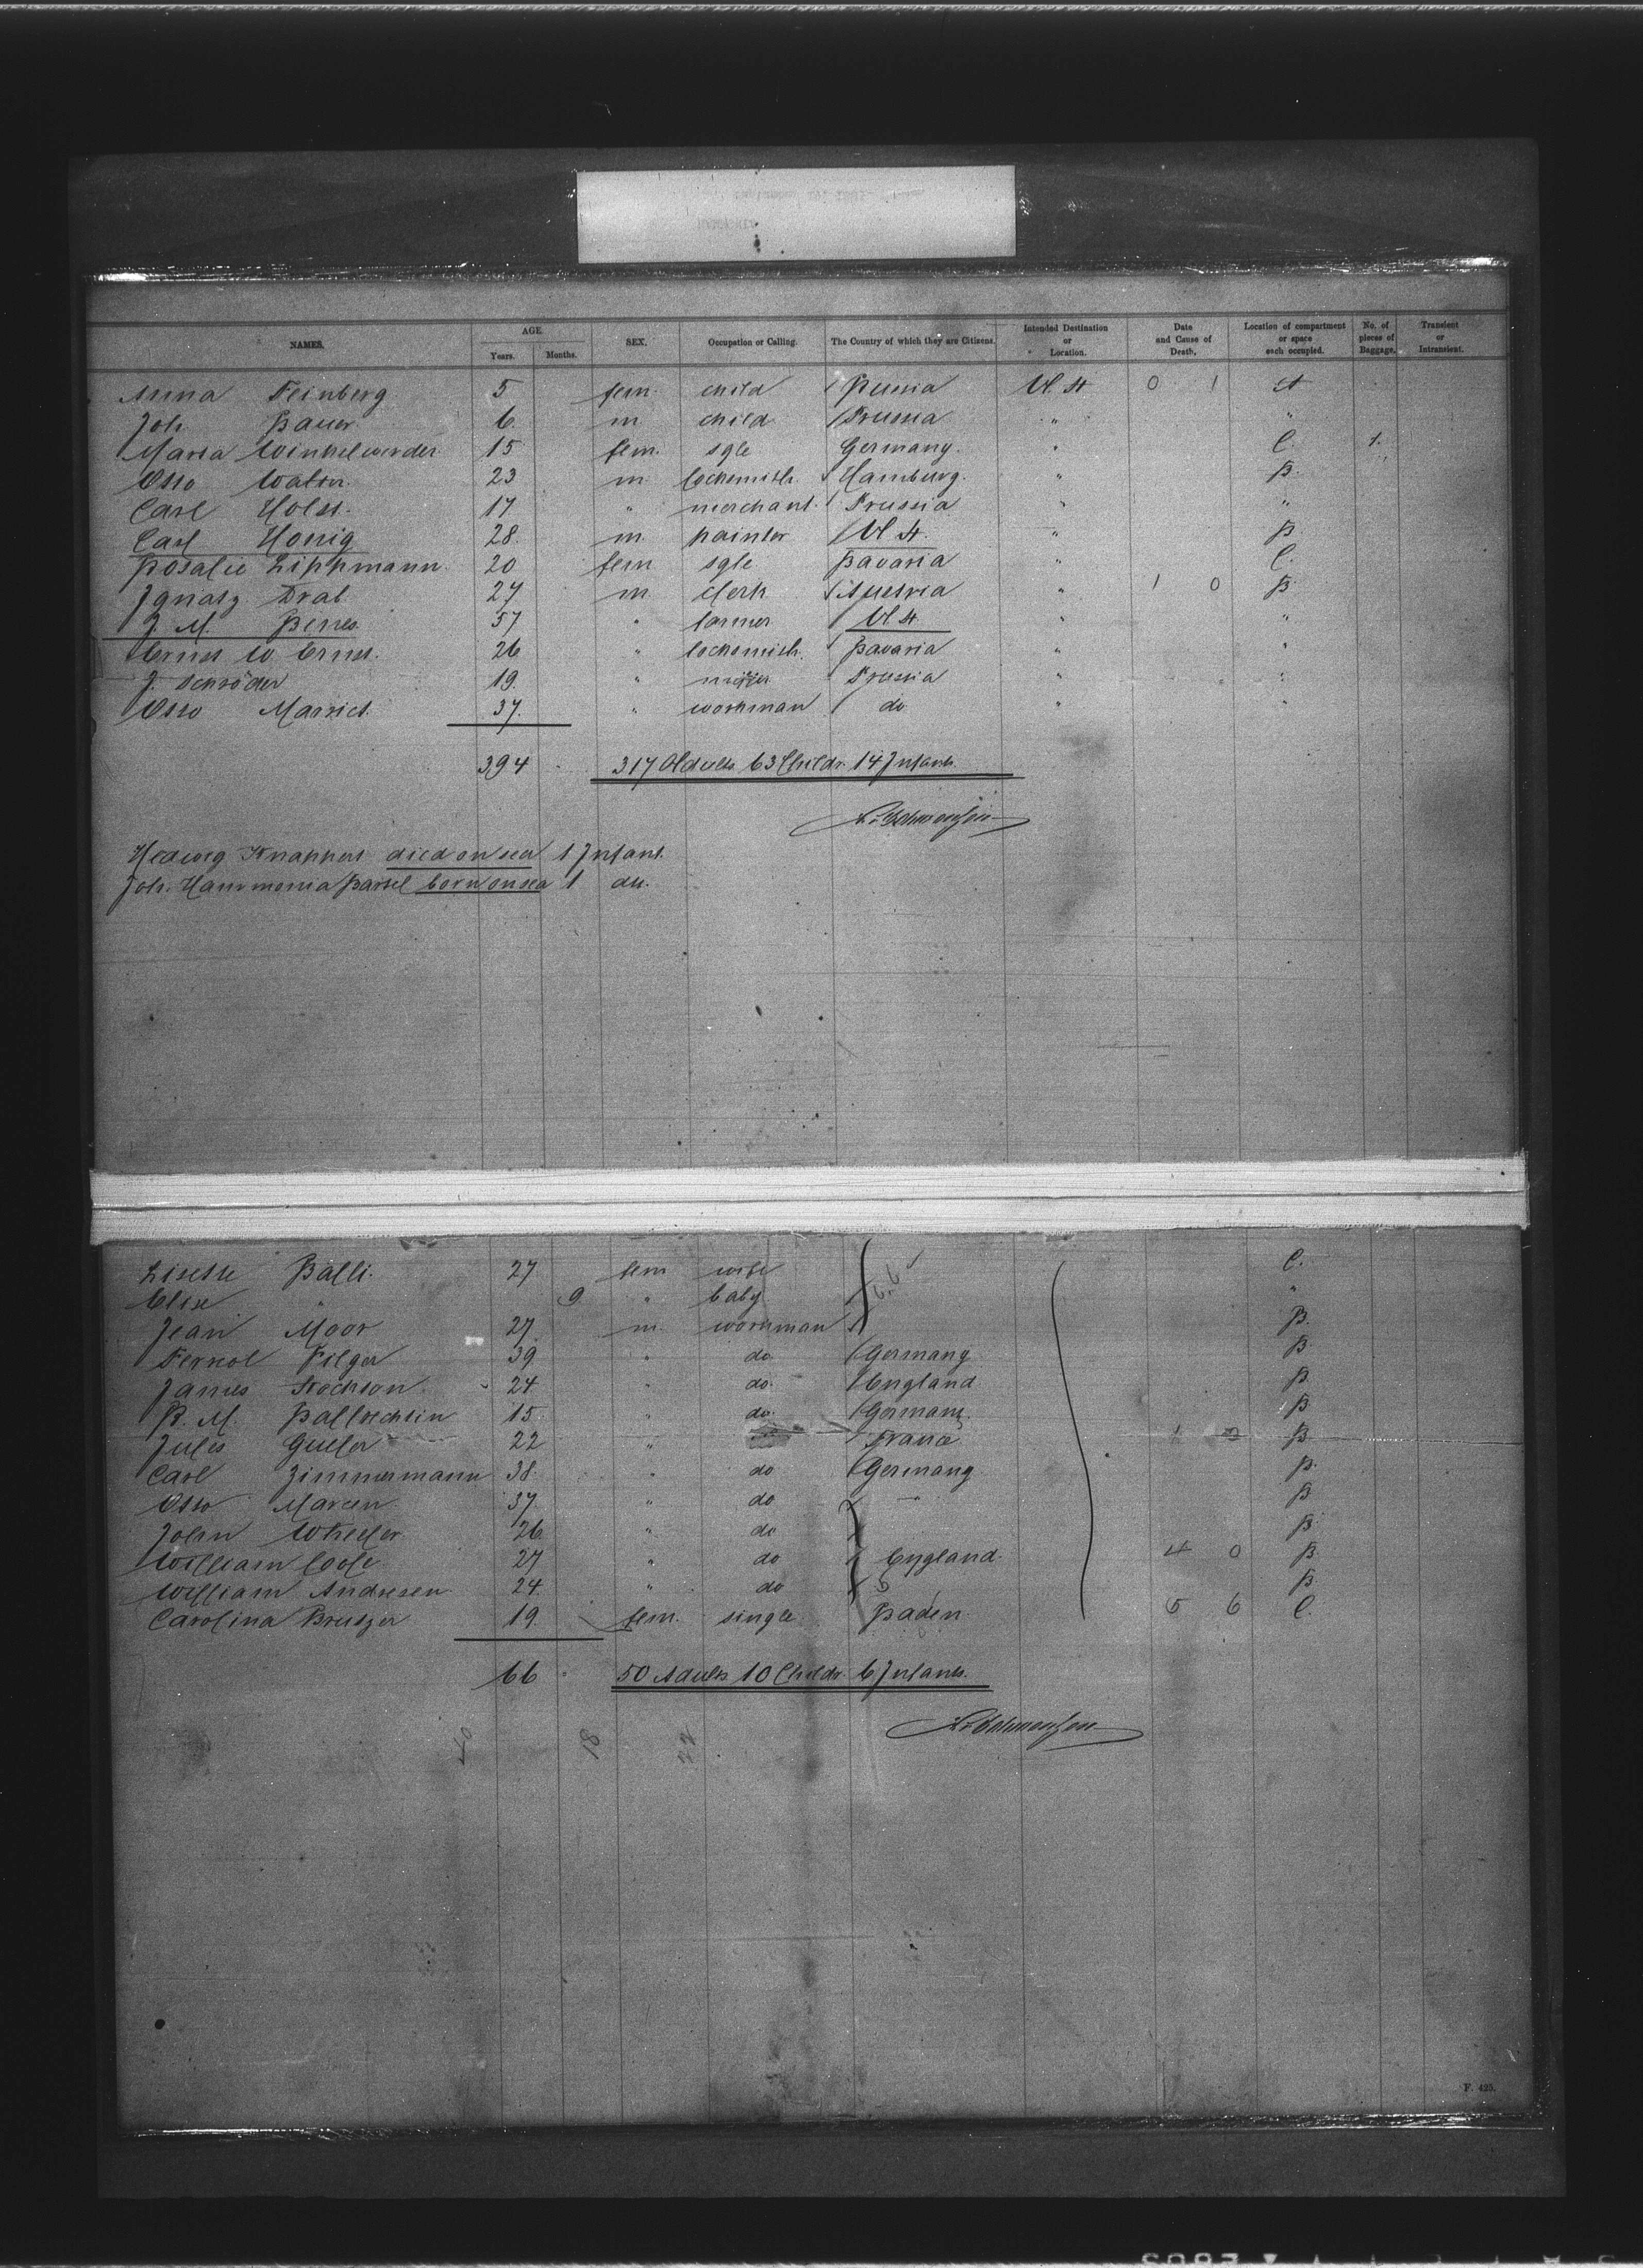 NAMES. AGE. Years. Months. SEX. Occupation or Calling. The Country of which they are Citizens. Intended Destination or Location. Date and Cause of Death. Location of compartment or space each occupied. No. of pieces of Baggage. Transient or Intransient.
Anna Feinberg 5 fem. child Russia U. St 0 1 A
Joh Bauer 6 m child Prussia " "
Maria Winkelwerder 15 fem. sgle Germany. " C. 1.
Otto 23 m locksmith Hamburg. " B.
Carl Holst. 17 " merchant. Prussia " "
Carl Honig 28. m. painter U. St. " B
Rosalie Lippmann 20 fem sgle Bavaria " C.
Ignatz Drab 27 m clerk Austria " 1 0 B
J. M. 57 " farmer U. St " "
Ernst W. Ernst. 26 " locksmith. Bavaria " "
J. Schröder 19. " Prussia " "
Otto 37. " workman do " "
394 317 Adults 63 Childr. 14 Infants.
Hedwig died on sea 1 Infant.
Joh. Hammonia Bartel born on sea 1 do.
Lisette Bälli. 27 fem wife C.
Elise " 9 " baby "
Jean Moor 27 m. workman B.
Pilger 39 " do Germany B
James 24 " do. England B
B. M. 15 " do. Germany B
Jules 22 " France B
Carl Zimmermann 38. " do Germany B.
Otto 37. " do B
John Wheeler 26 " do B.
William 27 " do England. 4 0 B
William Andresen 24. " do B
Carolina 19. fem. single Baden 5 6 C.
66 50 Adults 10 Childr. 6 Infants.
18 22
F. 425.